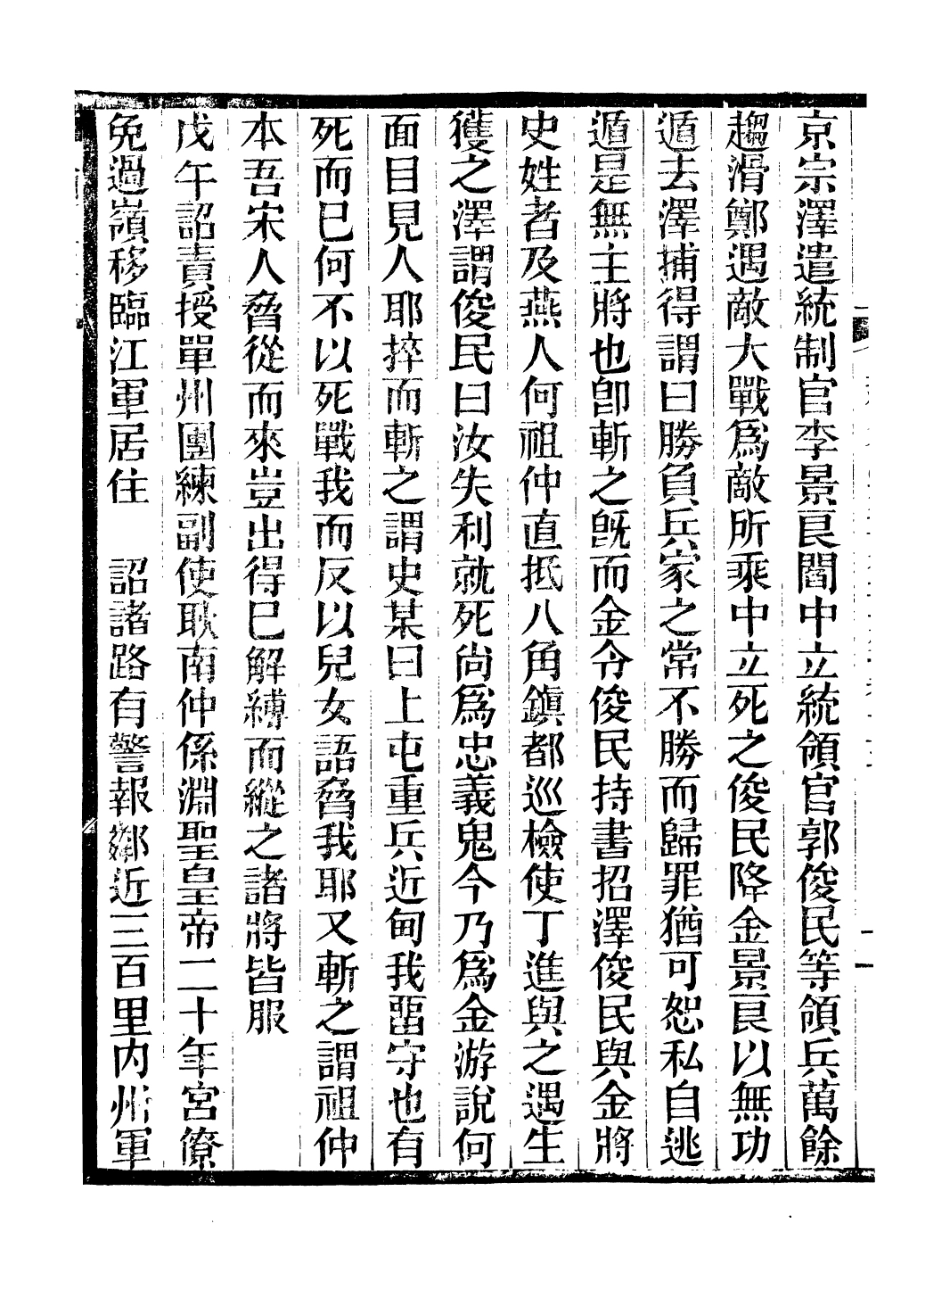 京宗澤遣統制官李景良閻中立統領官郭俊民等領兵萬餘
趨滑鄭遇敵大戰爲敵所乘中立死之俊民降金景良以無功
遁去澤捕得謂曰勝負兵家之常不勝而歸罪猶可恕私自逃
遁是無主將也卽斬之旣而金令俊民持書招澤俊民與金將
史姓者及燕人何祖仲直抵八角鎮都巡檢使丁進與之遇生
獲之澤謂俊民曰汝失利就死尚爲忠義鬼今乃爲金游說何
面目見人耶捽而斬之謂史某曰上屯重兵近甸我畱守也有
死而已何不以死戰我而反以兒女語脅我耶又斬之謂祖仲
本吾宋人脅從而來豈出得已解縛而縱之諸將皆服
戊午詔責授單州團練副使耿南仲係淵聖皇帝二十年宮僚
免過嶺移臨江軍居住　詔諸路有警報鄰近三百里內州軍